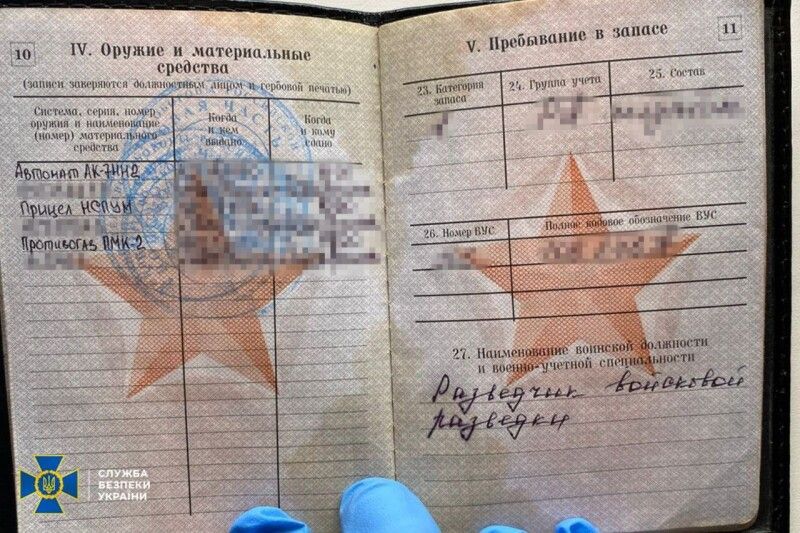 10
IV. Оружие и материальные
средства
(записи заверяются должностным лицом и гербовой печатью)
Система, серия, номер
оружия и наименование
(номер) материального
средства
Когда
и кем
выдано
Когда
и кому
сдано
Автомат АК-74Н2
Прицел НСПУМ
Противогаз ПМК-2
СЛУЖБА
БЕЗПЕКИ
УКРАЇНИ
11
V. Пребывание в запасе
23. Категория
запаса
24. Группа учета
25. Состав
26. Номер ВУС
Полное кодовое обозначение ВУС
27. Наименование воинской должности
и военно-учетной специальности
Разведчик войсковой
разведки